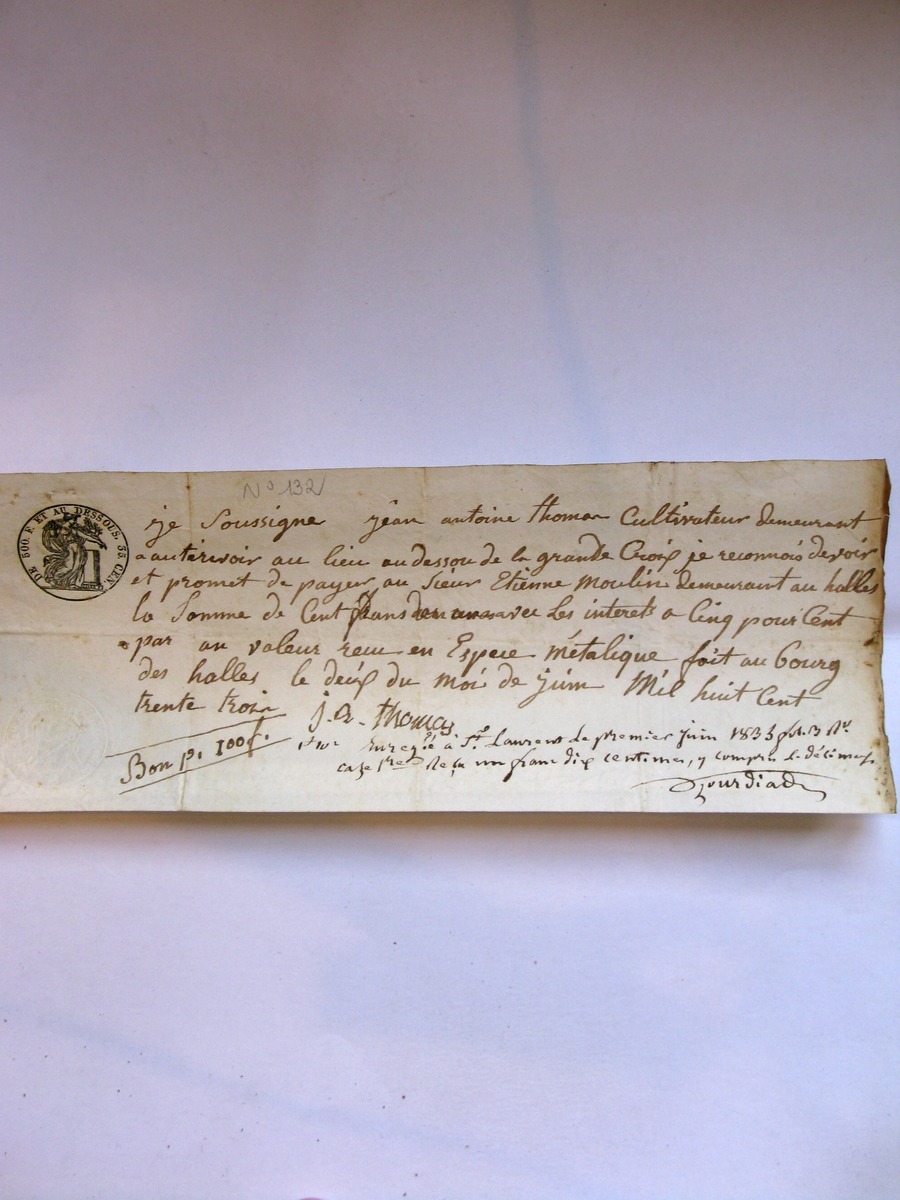 N° 132
DE 500. F. ET AU DESSOUS. 35 CEN
je Soussigne jean antoine thomas Cultivateur demeurant
a au lieu au dessou de la grande Croix je reconnois devoir
et promet de payer au Sieur Etienne Moulin demeurant au halles
la Somme de Cent frans avec Les interets a Cinq pour Cent
par an valeur recu en Espece métalique fait au bourg
des halles le deux du moi de juin Mil huit Cent
trente trois j. a. thomas
Bon pr. 100f.
Enregté à St. Laurent le premier juin 183 fol. 13 Ro.
case 1re Reçu un franc dix centimes, y compris le décime